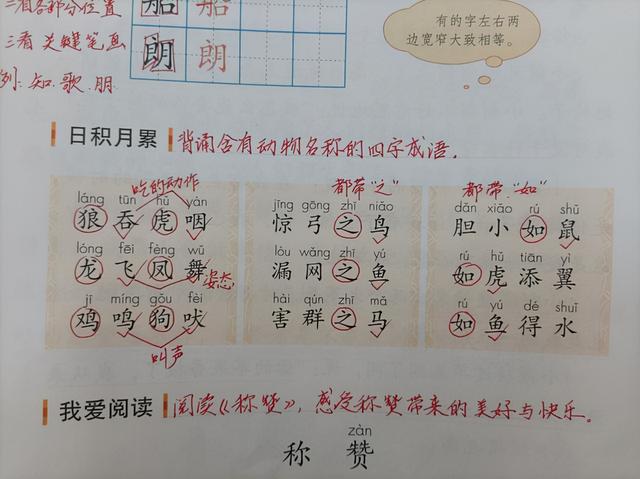 二看各部分位置
三看 关键笔画
例:知.歌.朋.
船 船
朗 朗
有的字左右两
边宽窄大致相等。
日积月累 背诵含有动物名称的四字成语.
吃的动作
láng tūn hǔ yàn
狼 吞 虎 咽
lóng fēi fèng wǔ
龙 飞 凤 舞
姿态
jī míng gǒu fèi
鸡 鸣 狗 吠
叫声
都带“之”
jīng gōng zhī niǎo
惊 弓 之 鸟
lòu wǎng zhī yú
漏 网 之 鱼
hài qún zhī mǎ
害 群 之 马
都带“如”
dǎn xiǎo rú shǔ
胆 小 如 鼠
rú hǔ tiān yì
如 虎 添 翼
rú yú dé shuǐ
如 鱼 得 水
我爱阅读 阅读《称赞》,感受称赞带来的美好与快乐。
zàn
称 赞